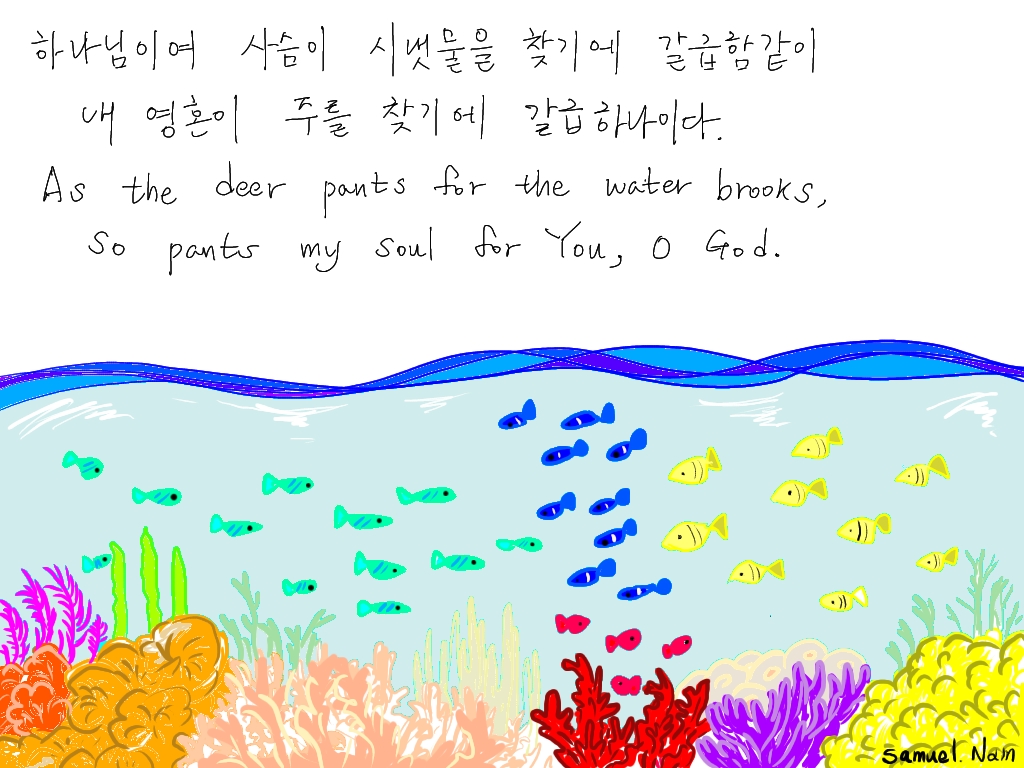 하나님이여 사슴이 시냇물을 찾기에 갈급함같이
내 영혼이 주를 찾기에 갈급하나이다.
As the deer pants for the water brooks,
So pants my soul for You, O God.
Samuel. Nam